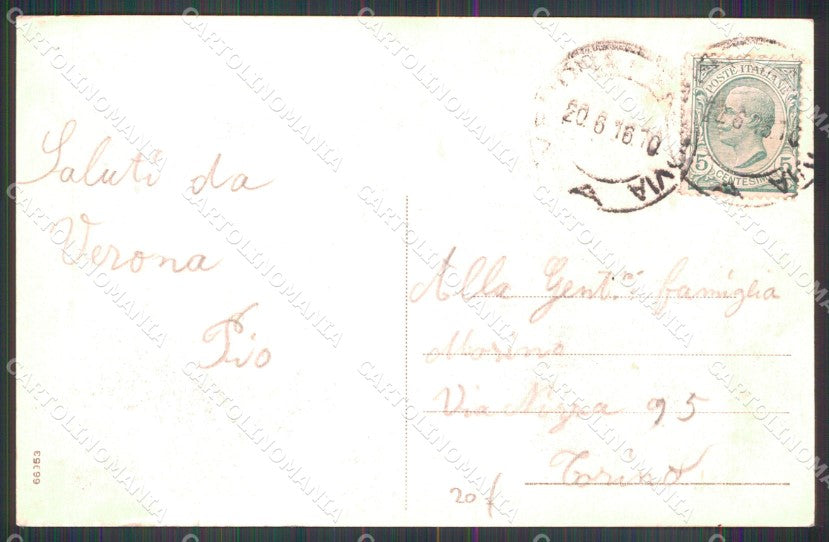 Saluti da
Verona
Pio
POSTE ITALIANE
5 CENTESIMI 5
20.6.16.10
VIA
Alla Gent.ma famiglia
Morino
Via Nizza 95
Torino
20
66053
CARTOLINOMANIA